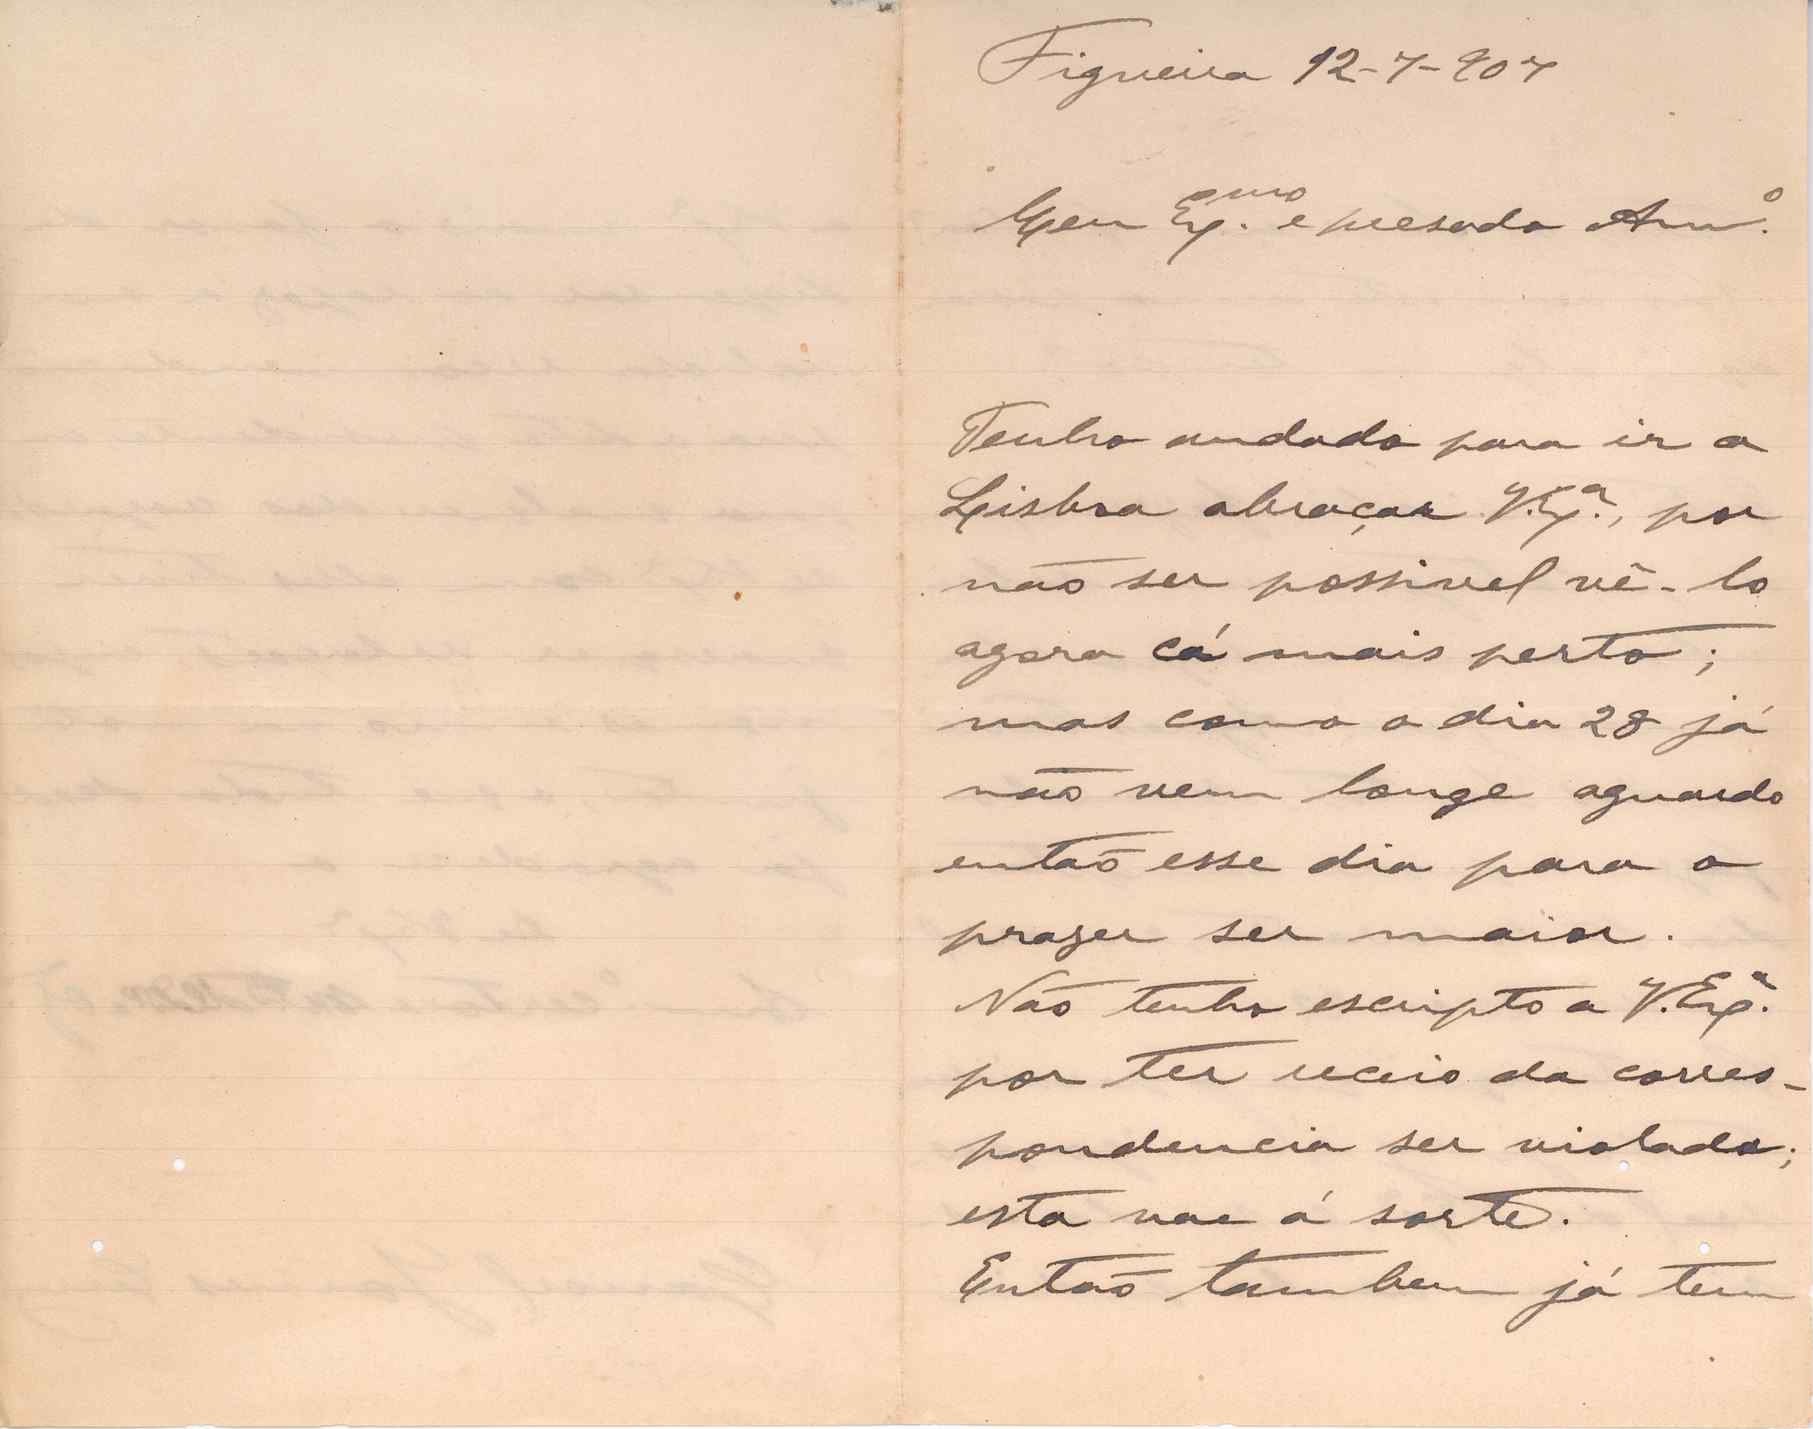 Figueira 12-7-907
Meu Ex.mo e presado Am.o
Tenho andado para ir a
Lisboa abraçar V.Ex.a, por
não ser possivel vê-lo
agora cá mais perto;
mas como o dia 28 já
não vem longe aguardo
então esse dia para o
prazer ser maior.
Não tenho escripto a V.Ex.a
por ter receio da corres-
pondencia ser violada;
esta vae á sorte.
Então tambem já tem